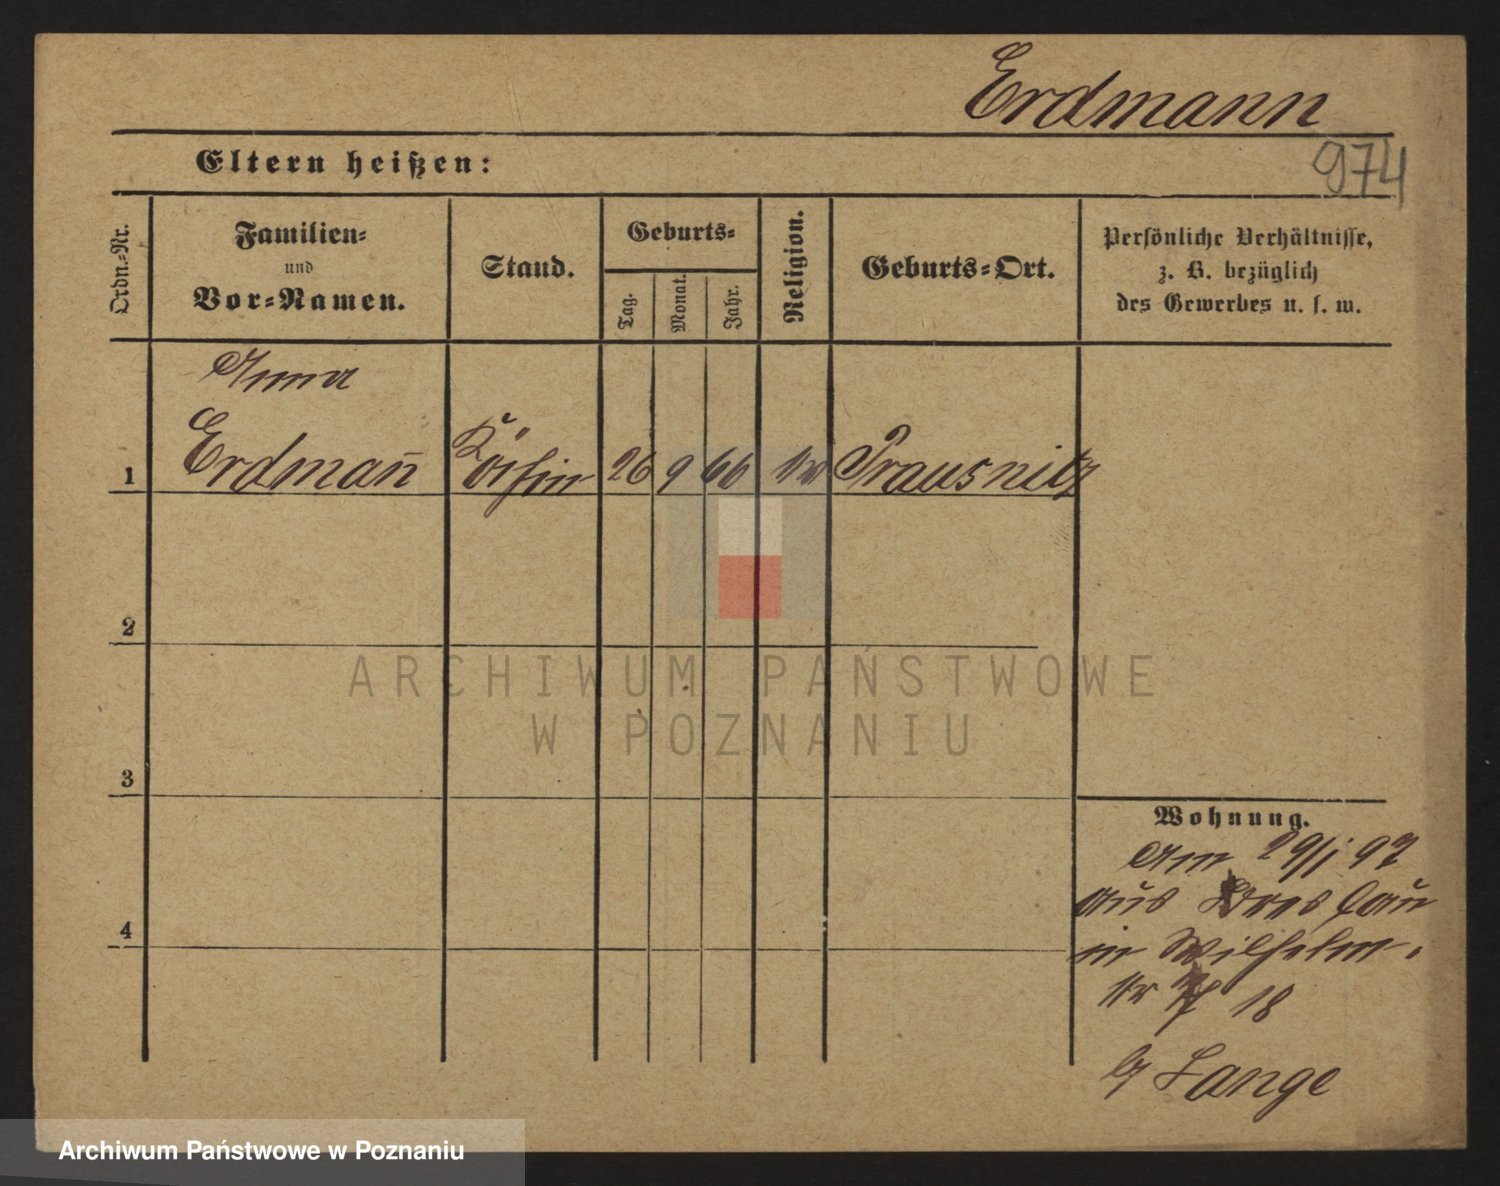 Erdmann
974
Eltern heißen:
Ordn.-Nr.
Familien-
und
Vor-Namen.
Stand.
Geburts-
Tag.
Monat.
Jahr.
Religion.
Geburts-Ort.
Persönliche Verhältnisse,
z. B. bezüglich
des Gewerbes u. s. w.
Anna
1 Erdmañ Köchin 26 9 66 Prausnitz
2
3
4
Wohnung.
Am 29/1 97
aus Breslau
in Wilhelm-
str 18
b/ Lange
ARCHIWUM PAŃSTWOWE
W POZNANIU
Archiwum Państwowe w Poznaniu